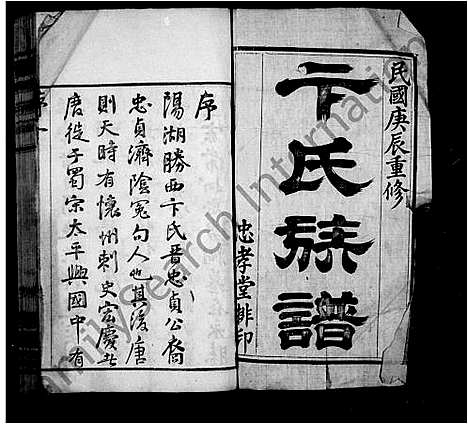 民國庚辰重修
卞氏族譜
忠孝堂排印
序
陽湖勝西卞氏晉忠貞公裔
忠貞濟陰冤句人也其後唐
則天時有懷州刺史宏慶者
慶從子蜀宗太平興國中有
序
FamilySearch International